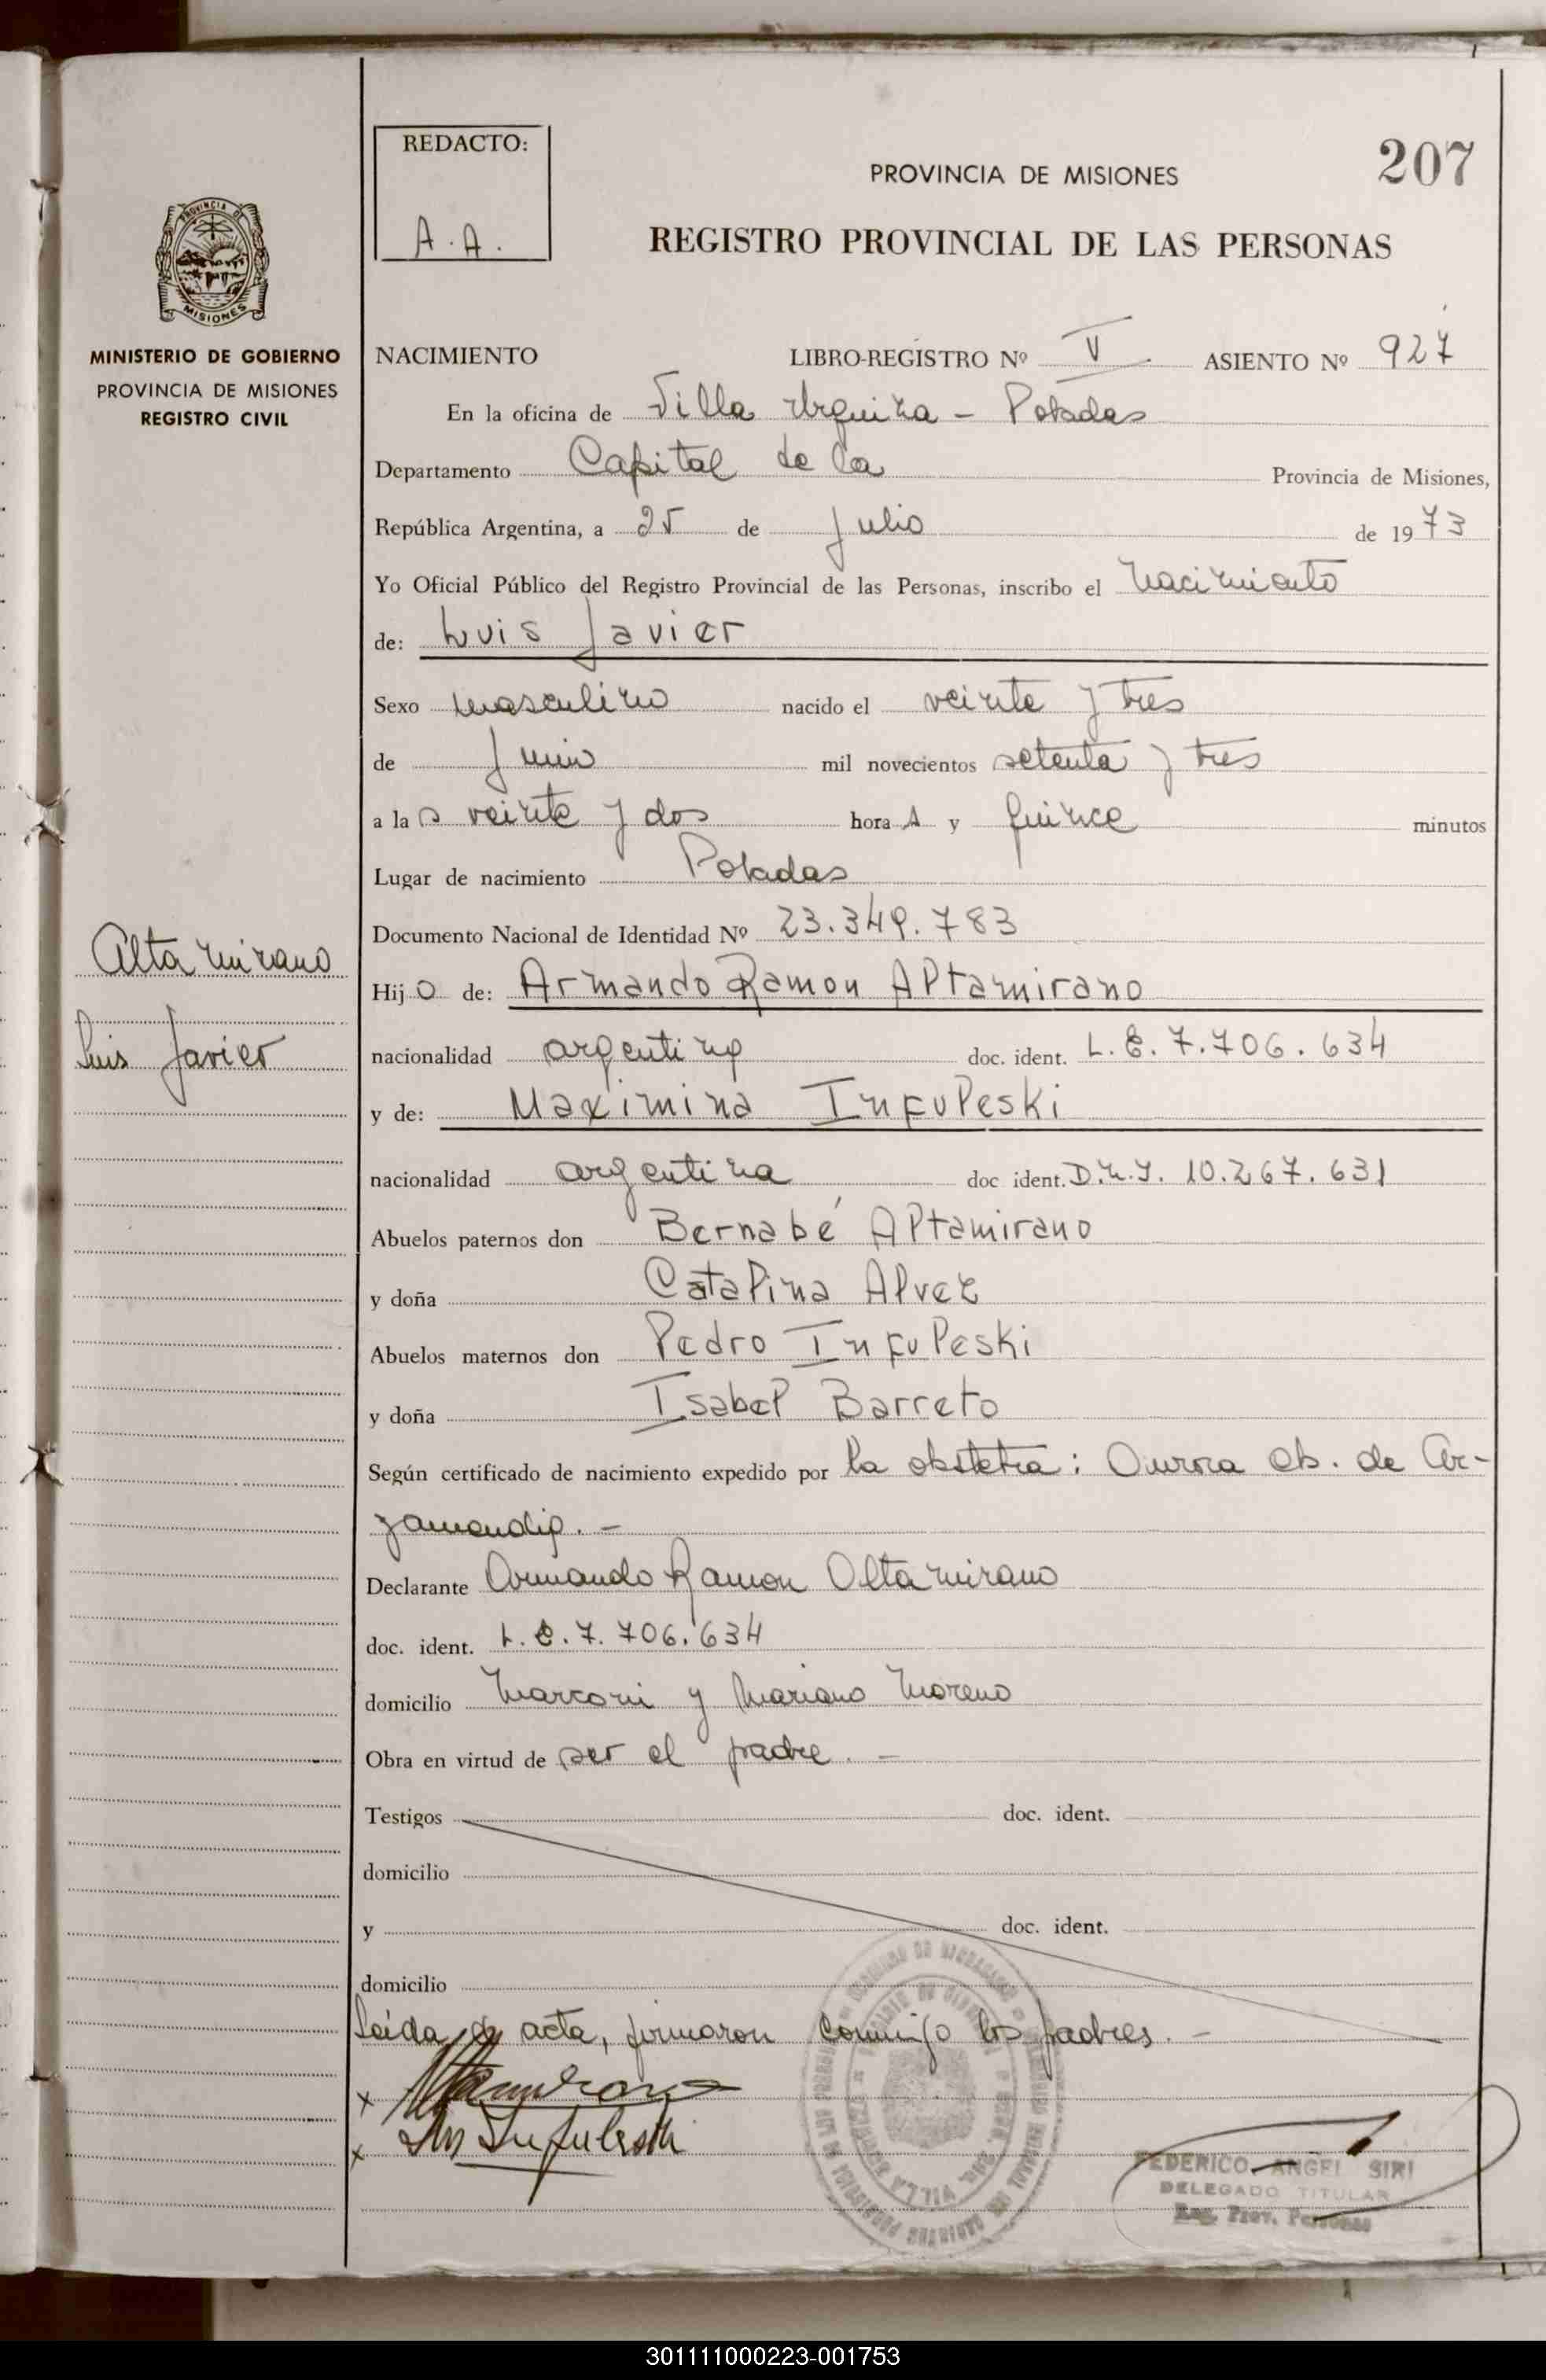 REDACTO:
A.A.
PROVINCIA DE MISIONES
207
REGISTRO PROVINCIAL DE LAS PERSONAS
PROVINCIA DE
MISIONES
MINISTERIO DE GOBIERNO
PROVINCIA DE MISIONES
REGISTRO CIVIL
NACIMIENTO LIBRO-REGISTRO Nº V ASIENTO Nº 927
En la oficina de Villa Urquiza - Posadas
Departamento Capital de la Provincia de Misiones,
República Argentina, a 25 de Julio de 1973
Yo Oficial Público del Registro Provincial de las Personas, inscribo el nacimiento
de: Luis Javier
Sexo masculino nacido el veinte y tres
de Junio mil novecientos setenta y tres
a las veinte y dos hora s y quince minutos
Lugar de nacimiento Posadas
Documento Nacional de Identidad Nº 23.349.783
Altamirano
Luis Javier
Hijo de: Armando Ramon Altamirano
nacionalidad argentino doc. ident. L.E. 7.706.634
y de: Maximina Infuleski
nacionalidad argentina doc ident. D.N.I. 10.267.631
Abuelos paternos don Bernabé Altamirano
y doña Catalina Alvez
Abuelos maternos don Pedro Infuleski
y doña Isabel Barreto
Según certificado de nacimiento expedido por la obstetra: Aurora Ch. de Ar-
zamendia. -
Declarante Armando Ramon Altamirano
doc. ident. L.E. 7.706.634
domicilio Marconi y Mariano Moreno
Obra en virtud de ser el padre. -
Testigos doc. ident.
domicilio
y doc. ident.
domicilio
Leída el acta, firmaron conmigo los padres. -
x Altamirano
x Infuleski
FEDERICO ANGEL SIRI
DELEGADO TITULAR
Reg. Prov. Personas
301111000223-001753